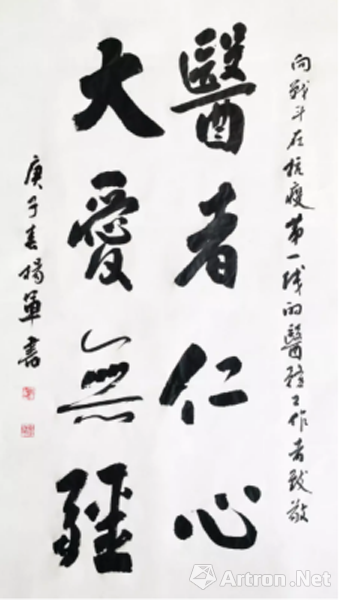 向战斗在抗疫第一线的醫務工作者致敬
醫者仁心
大愛無疆
庚子春楊軍書
Artron.Net